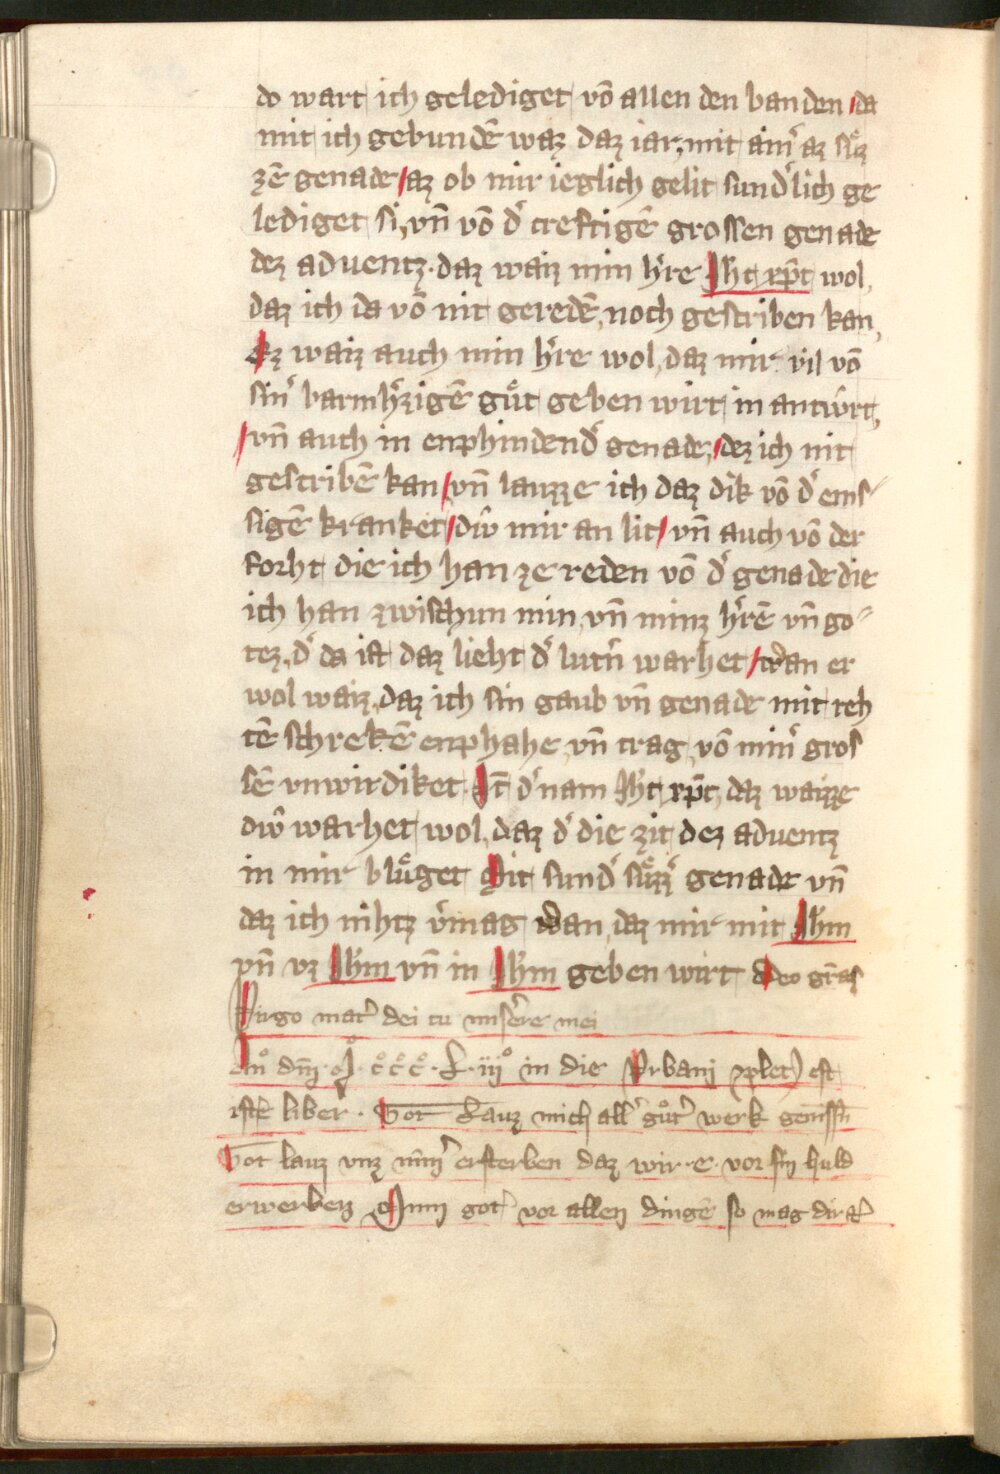 do wart ich gelediget vō allen den banden da
mit ich gebundē waz daz iar, mit aim̉ az sůz
zē genade az ob mir ieglich gelit sund̉lich ge
lediget si, vn̄ vō d̉ creftigē grossen genade
dez aduentz. daz waiz min h̉re Jh̄c xp̄c wol,
daz ich da vō nit geredē, noch gescriben kan,
Ez waiz auch min h̉re wol, daz mir vil vō
sin̉ barmh̉zigē gůt geben wirt in antwrt,
vn̄ auch in enphindend̉ genade, dez ich nit
gescribē kan vn̄ lauzze ich daz dik vō d̉ ems
sigē kranket diŵ mir an lit vn̄ auch vō der
forht die ich han ze reden vō d̉ genade die
ich han zwischun min, vn̄ minz h̉rē vn̄ go
tez, d̉ da ist daz lieht d̉ lutn̉ warhet wan er
wol waiz, daz ich sin gaub vn̄ genade mit reh
tē schrekē enphahe, vn̄ trag, vō min̉ gros
sē vnwirdiket. It̄ d̉ nam Jh̄c xp̄c, daz waizze
diŵ warhet wol, daz d̉ die zit dez aduentz
in mir blůget Mit sund̉ sůzz̉ genade vn̄
daz ich nihtz v̉mag wan, daz mir mit Jh̄m
vn̄ vz Jh̄m vn̄ in Jh̄m geben wirt Deo gr̄as
Virgo mat̉ dei tu mise̓re mei
Anº dm̄j. Mº. cº cº cº. L. iijº in die Vrbanj ꝯplet) est
istē liber. Got lauz mich all̉ gůt̉ werk genissn̄
Got lauz vnz nim̄̉ ersterben daz wir. e. vor sin huld
erwerben Minn got vor allen dingē so mag dir